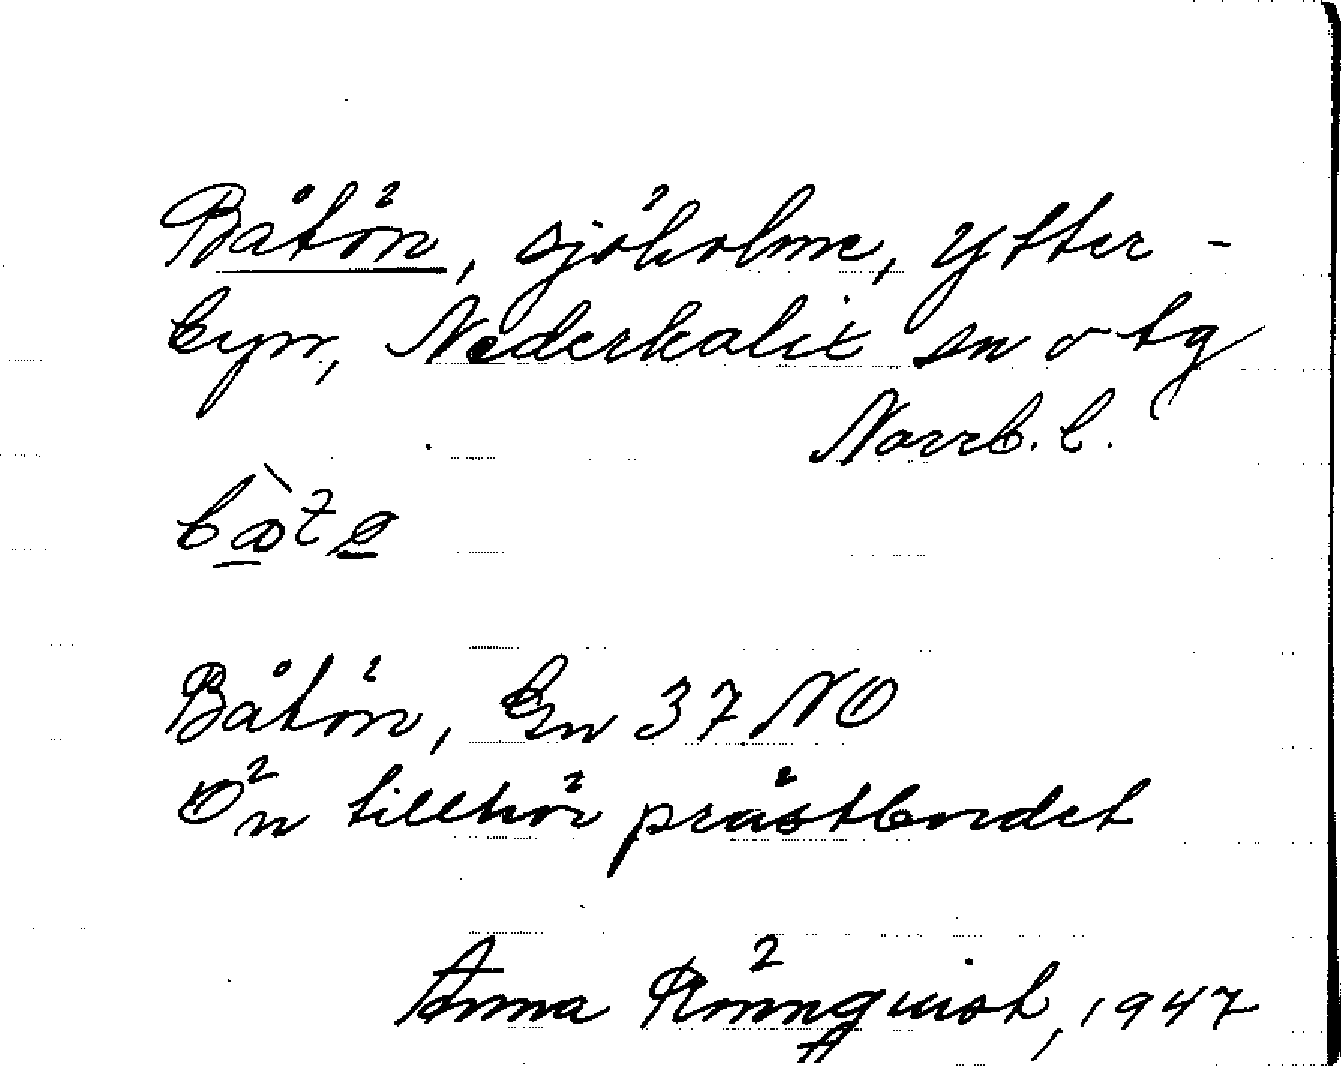 Båtön, sjöholme, Ytter-
byn, Nederkalix sn o tg
Norrb. l.
Båtön, En 37 NO
Ön tillhör prästbordet
Anna Rönnqvist, 1947